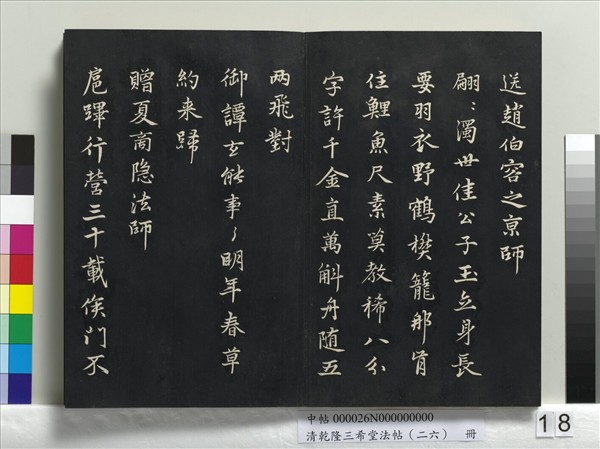 送趙伯容之亰師
翩〻濁世佳公子玉立身長
要羽衣野鶴樊籠那肯
住鯉魚尺素莫教稀八分
字許千金直萬斛舟随五
两飛對
御譚玄能事〻明年春草
約来歸
贈夏商隐法師
扈蹕行營三十載侯門不
中帖 000026N000000000
清乾隆三希堂法帖（二六） 冊
18